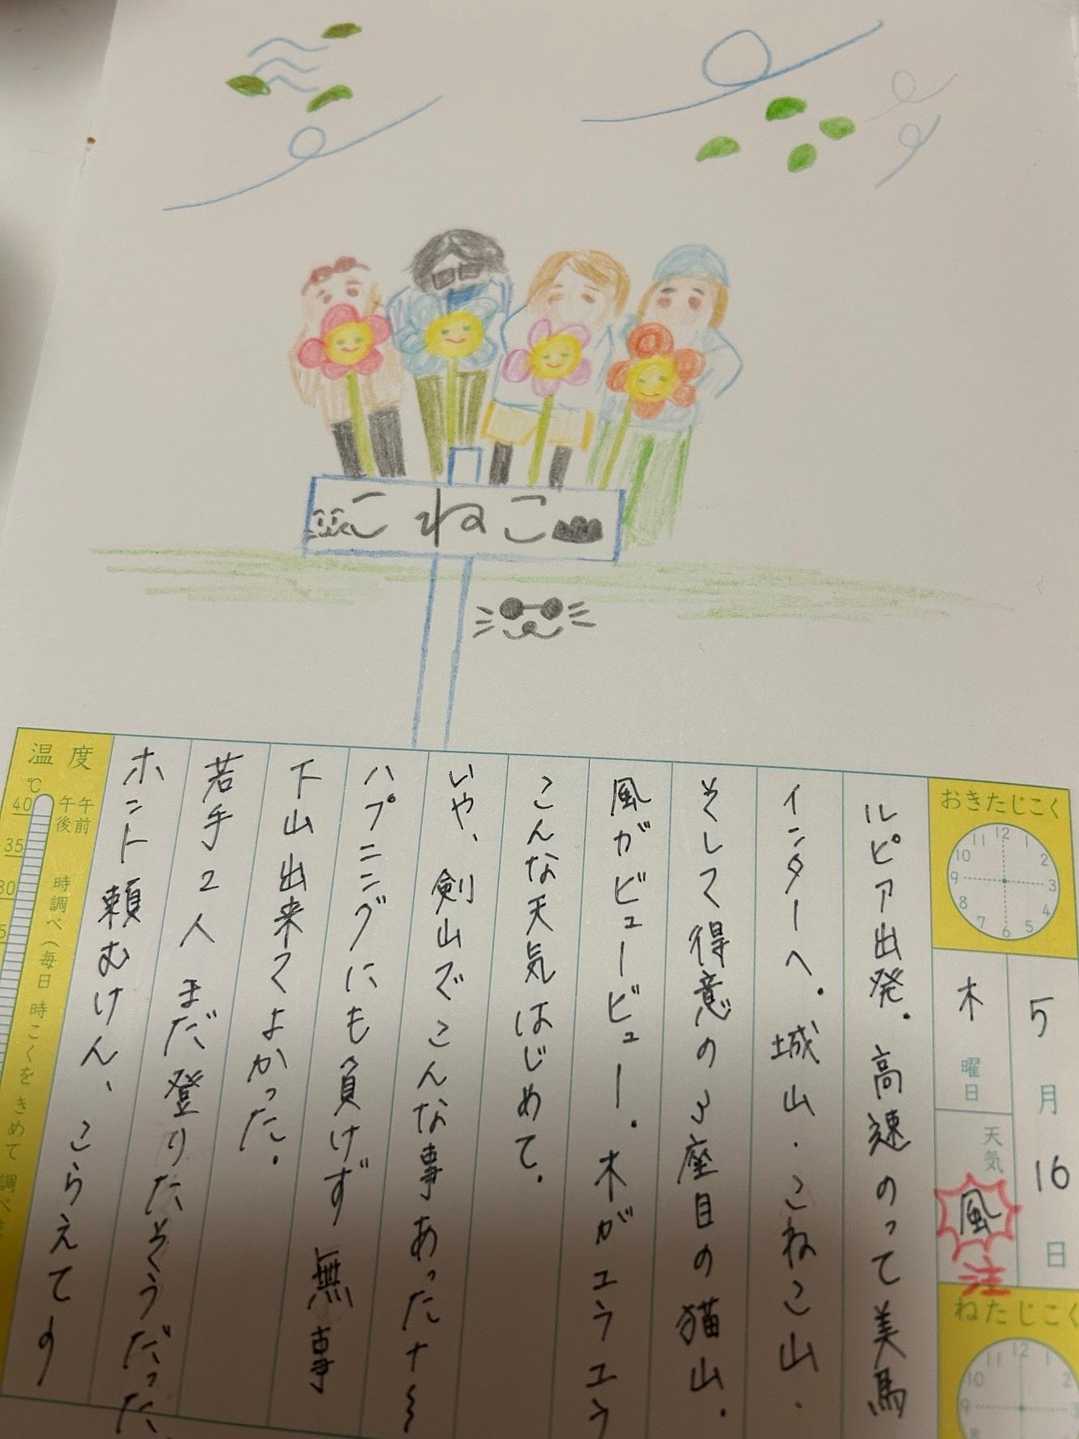 こねこ
おきたじこく
12
1
2
3
4
5
6
7
8
9
10
11
5月16日
木曜日
天気
風
注
ねたじこく
12
11
10
9
1
2
3
ルピア出発。高速のって美馬
インターへ。城山・こねこ山・
そして得意の3座目の猫山。
風がビュービュー。木がユラユラ
こんな天気はじめて。
いや、剣山でこんな事あったナ〜
ハプニングにも負けず 無事
下山出来てよかった。
若手2人 まだ登りたそうだった
ホント頼むけん、こらえて〜
温度
℃
午前
午後
時調べ(毎日 時こくを きめて 調べ
40
35
30